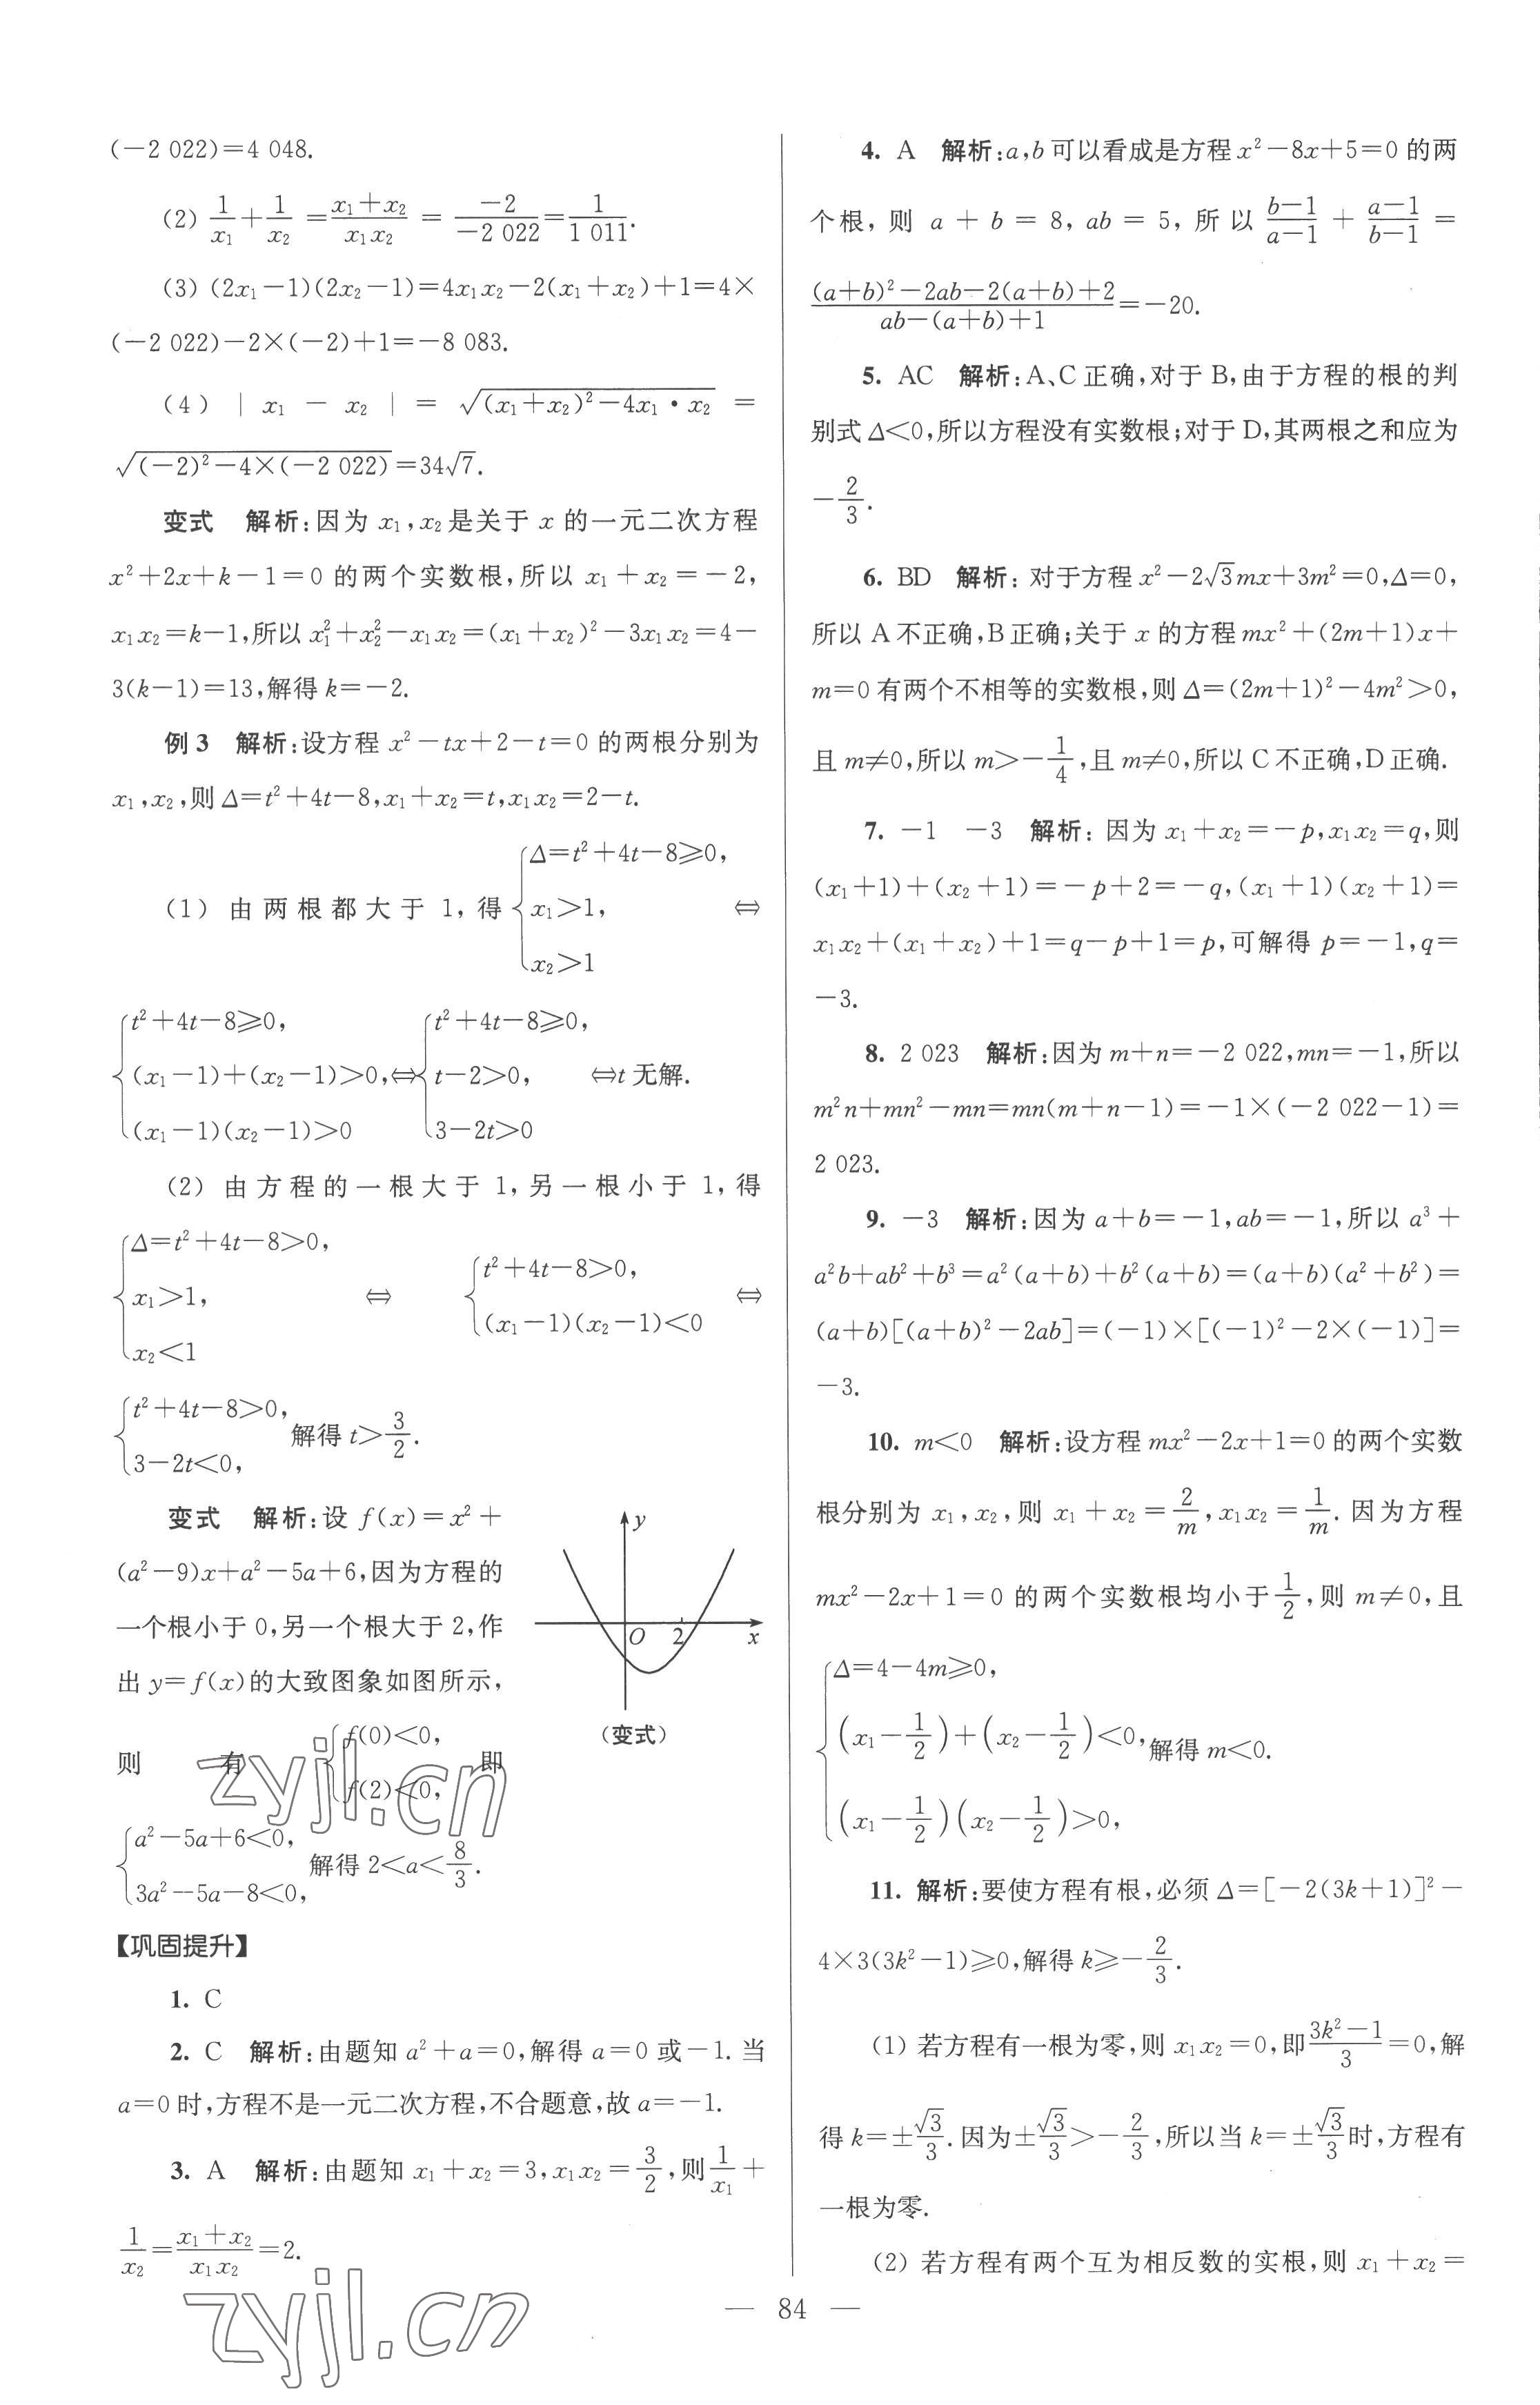 (-2 022)=4 048.
(2) 1/x₁+1/x₂=(x₁+x₂)/(x₁x₂)=(-2)/(-2 022)=1/1 011.
(3) (2x₁-1)(2x₂-1)=4x₁x₂-2(x₁+x₂)+1=4×
(-2 022)-2×(-2)+1=-8 083.
(4) |x₁-x₂|=√((x₁+x₂)²-4x₁·x₂)=
√((-2)²-4×(-2 022))=34√7.
变式 解析:因为 x₁,x₂是关于 x 的一元二次方程
x²+2x+k-1=0 的两个实数根,所以 x₁+x₂=-2,
x₁x₂=k-1,所以 x₁²+x₂²-x₁x₂=(x₁+x₂)²-3x₁x₂=4-
3(k-1)=13,解得 k=-2.
例 3 解析:设方程 x²-tx+2-t=0 的两根分别为
x₁,x₂,则 Δ=t²+4t-8,x₁+x₂=t,x₁x₂=2-t.
(1) 由两根都大于 1,得{Δ=t²+4t-8≥0, x₁>1, x₂>1 ⇔
{t²+4t-8≥0, (x₁-1)+(x₂-1)>0, (x₁-1)(x₂-1)>0 ⇔{t²+4t-8≥0, t-2>0, 3-2t>0 ⇔t 无解.
(2) 由方程的一根大于 1,另一根小于 1,得
{Δ=t²+4t-8>0, x₁>1, x₂<1 ⇔ {t²+4t-8>0, (x₁-1)(x₂-1)<0 ⇔
{t²+4t-8>0, 3-2t<0, 解得 t>3/2.
变式 解析:设 f(x)=x²+
(a²-9)x+a²-5a+6,因为方程的
一个根小于 0,另一个根大于 2,作
出 y=f(x)的大致图象如图所示,
则有{f(0)<0, f(2)<0, 即
{a²-5a+6<0, 3a²-5a-8<0, 解得 2<a<8/3.
y
O 2 x
(变式)
【巩固提升】
1. C
2. C 解析:由题知 a²+a=0,解得 a=0 或-1. 当
a=0 时,方程不是一元二次方程,不合题意,故 a=-1.
3. A 解析:由题知 x₁+x₂=3,x₁x₂=3/2,则1/x₁+
1/x₂=(x₁+x₂)/(x₁x₂)=2.
4. A 解析:a,b 可以看成是方程 x²-8x+5=0 的两
个根,则 a+b=8,ab=5,所以 (b-1)/(a-1)+(a-1)/(b-1)=
((a+b)²-2ab-2(a+b)+2)/(ab-(a+b)+1)=-20.
5. AC 解析:A、C 正确,对于 B,由于方程的根的判
别式 Δ<0,所以方程没有实数根;对于 D,其两根之和应为
-2/3.
6. BD 解析:对于方程 x²-2√3mx+3m²=0,Δ=0,
所以 A 不正确,B 正确;关于 x 的方程 mx²+(2m+1)x+
m=0 有两个不相等的实数根,则 Δ=(2m+1)²-4m²>0,
且 m≠0,所以 m>-1/4,且 m≠0,所以 C 不正确,D 正确.
7. -1 -3 解析:因为 x₁+x₂=-p,x₁x₂=q,则
(x₁+1)+(x₂+1)=-p+2=-q,(x₁+1)(x₂+1)=
x₁x₂+(x₁+x₂)+1=q-p+1=p,可解得 p=-1,q=
-3.
8. 2 023 解析:因为 m+n=-2 022,mn=-1,所以
m²n+mn²-mn=mn(m+n-1)=-1×(-2 022-1)=
2 023.
9. -3 解析:因为 a+b=-1,ab=-1,所以 a³+
a²b+ab²+b³=a²(a+b)+b²(a+b)=(a+b)(a²+b²)=
(a+b)[(a+b)²-2ab]=(-1)×[(-1)²-2×(-1)]=
-3.
10. m<0 解析:设方程 mx²-2x+1=0 的两个实数
根分别为 x₁,x₂,则 x₁+x₂=2/m,x₁x₂=1/m. 因为方程
mx²-2x+1=0 的两个实数根均小于1/2,则 m≠0,且
{Δ=4-4m≥0, (x₁-1/2)+(x₂-1/2)<0, (x₁-1/2)(x₂-1/2)>0, 解得 m<0.
11. 解析:要使方程有根,必须 Δ=[-2(3k+1)]²-
4×3(3k²-1)≥0,解得 k≥-2/3.
(1) 若方程有一根为零,则 x₁x₂=0,即(3k²-1)/3=0,解
得 k=±√3/3. 因为±√3/3>-2/3,所以当 k=±√3/3时,方程有
一根为零.
(2) 若方程有两个互为相反数的实根,则 x₁+x₂=
— 84 —
zyjl.cn
zyjl.cn